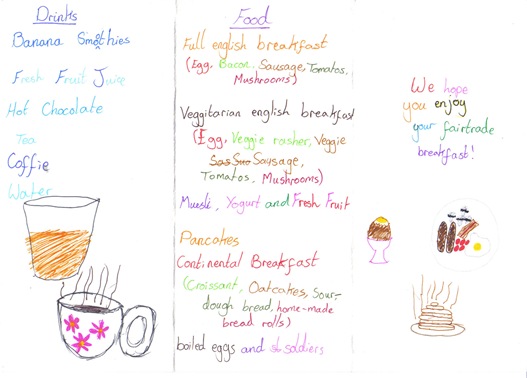 Drinks
Banana Smothies
Fresh Fruit Juice
Hot Chocolate
Tea
Coffie
Water
Food
Full english breakfast
(Egg, Bacon, Sausage, Tomatos,
Mushrooms)
Veggitarian english breakfast
(Egg, Veggie rasher, Veggie
Sas Suo Sausage,
Tomatos, Mushrooms)
Muesli, Yogurt and Fresh Fruit
Pancakes
Continental Breakfast
(Croissant, Oatcakes, Sour-
dough bread, home-made
bread rolls)
boiled eggs and st soldiers
We hope
you enjoy
your fairtrade
breakfast!